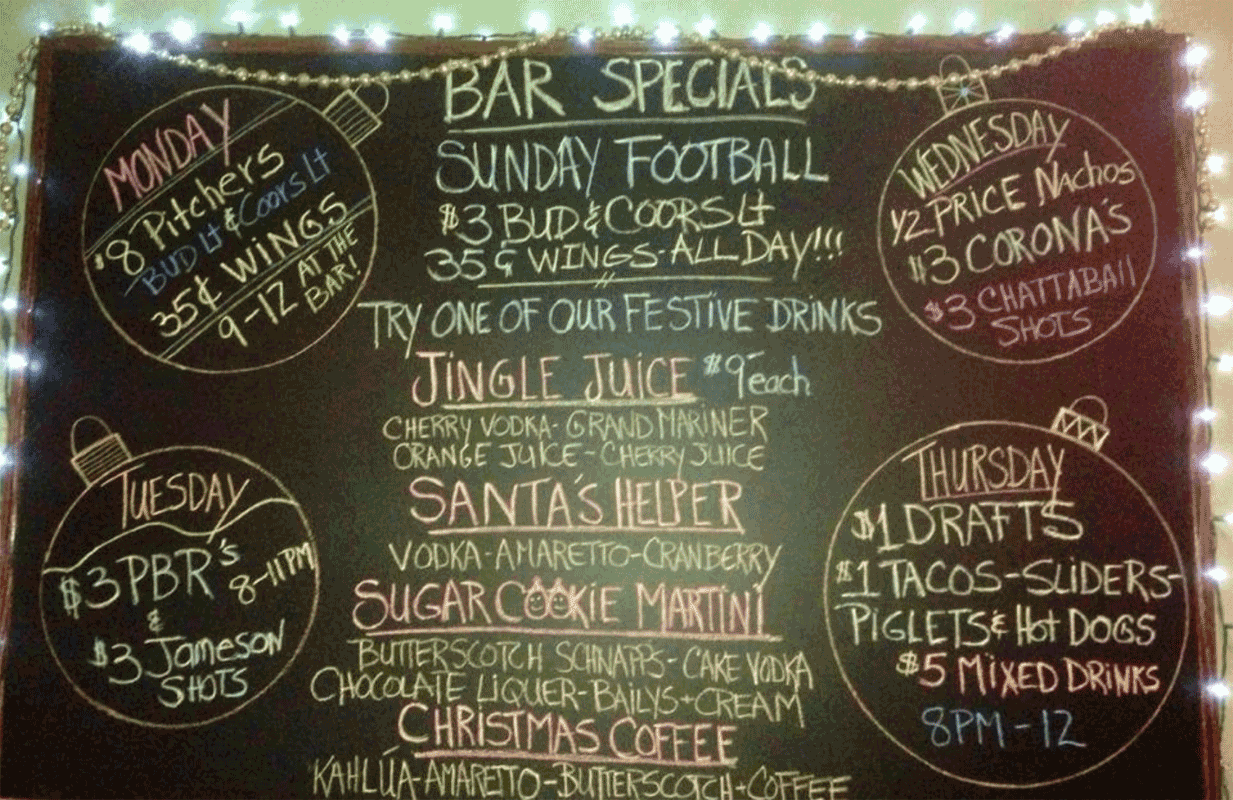 BAR SPECIALS
SUNDAY FOOTBALL
$3 BUD & COORS Lt
35¢ WINGS-ALL DAY!!!
TRY ONE OF OUR FESTIVE DRINKS
JINGLE JUICE $9 each
CHERRY VODKA-GRAND MARINER
ORANGE JUICE-CHERRY JUICE
SANTA'S HELPER
VODKA-AMARETTO-CRANBERRY
SUGAR COOKIE MARTINI
BUTTERSCOTCH SCHNAPPS-CAKE VODKA
CHOCOLATE LIQUER-BAILYS+CREAM
CHRISTMAS COFFEE
KAHLÚA-AMARETTO-BUTTERSCOTCH+COFFEE
MONDAY
$8 Pitchers
BUD Lt & Coors Lt
35¢ WINGS
9-12 AT THE
BAR!
TUESDAY
$3 PBR's
8-11PM
&
$3 Jameson
SHOTS
WEDNESDAY
1/2 PRICE Nachos
$3 CORONA'S
$3 CHATTABAII
SHOTS
THURSDAY
$1 DRAFTS
$1 TACOS-SLIDERS-
PIGLETS & Hot DOGS
$5 MIXED DRINKS
8PM-12